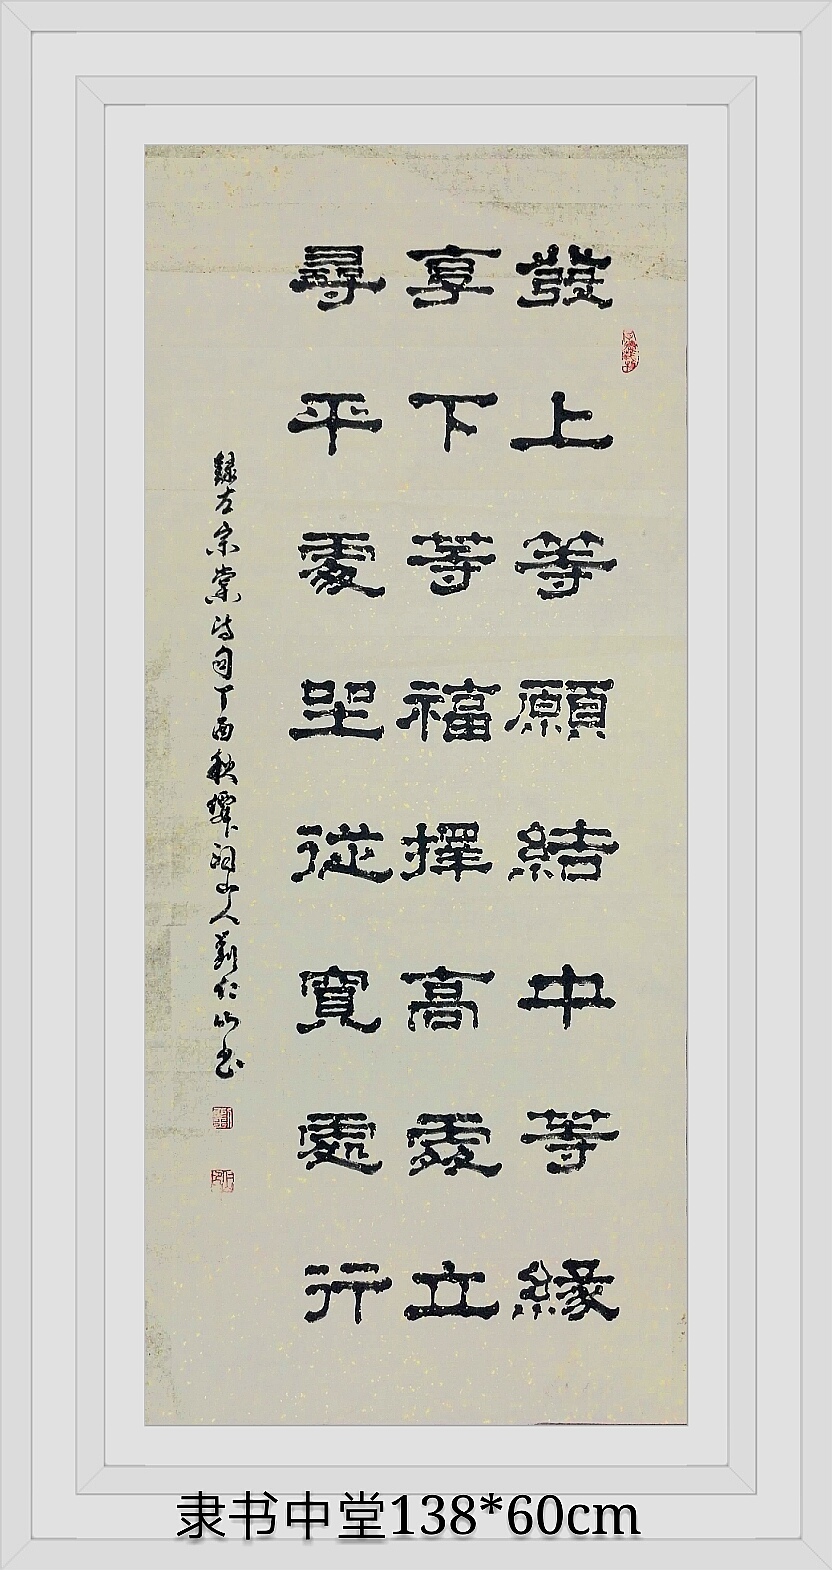 發上等願結中等緣
享下等福擇高處立
尋平處坐從寬處行
隸左宗棠诗句丁酉秋山人劉仁山书
隶书中堂138*60cm